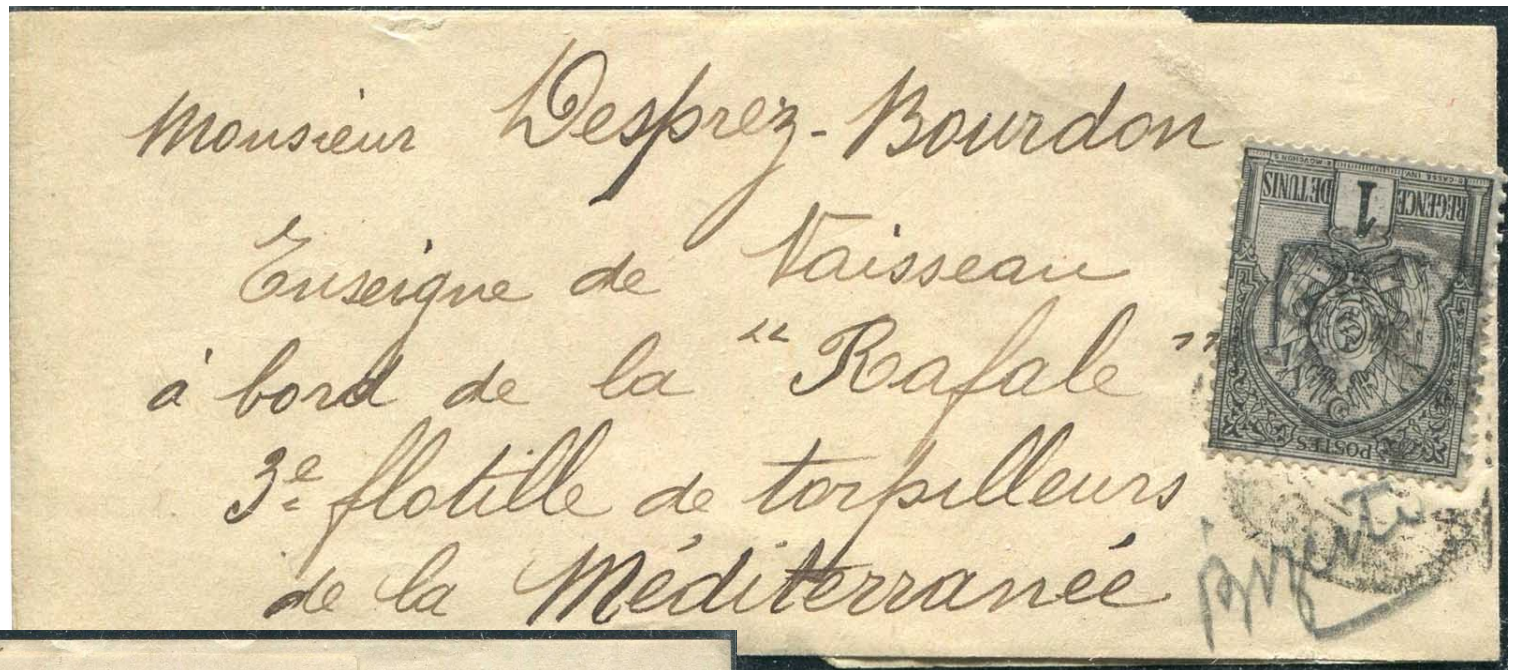 Monsieur Desprez-Bourdon
Enseigne de Vaisseau
à bord de la "Rafale"
3e flotille de torpilleurs
de la Méditerranée
REGENCE DE TUNIS
1
POSTES